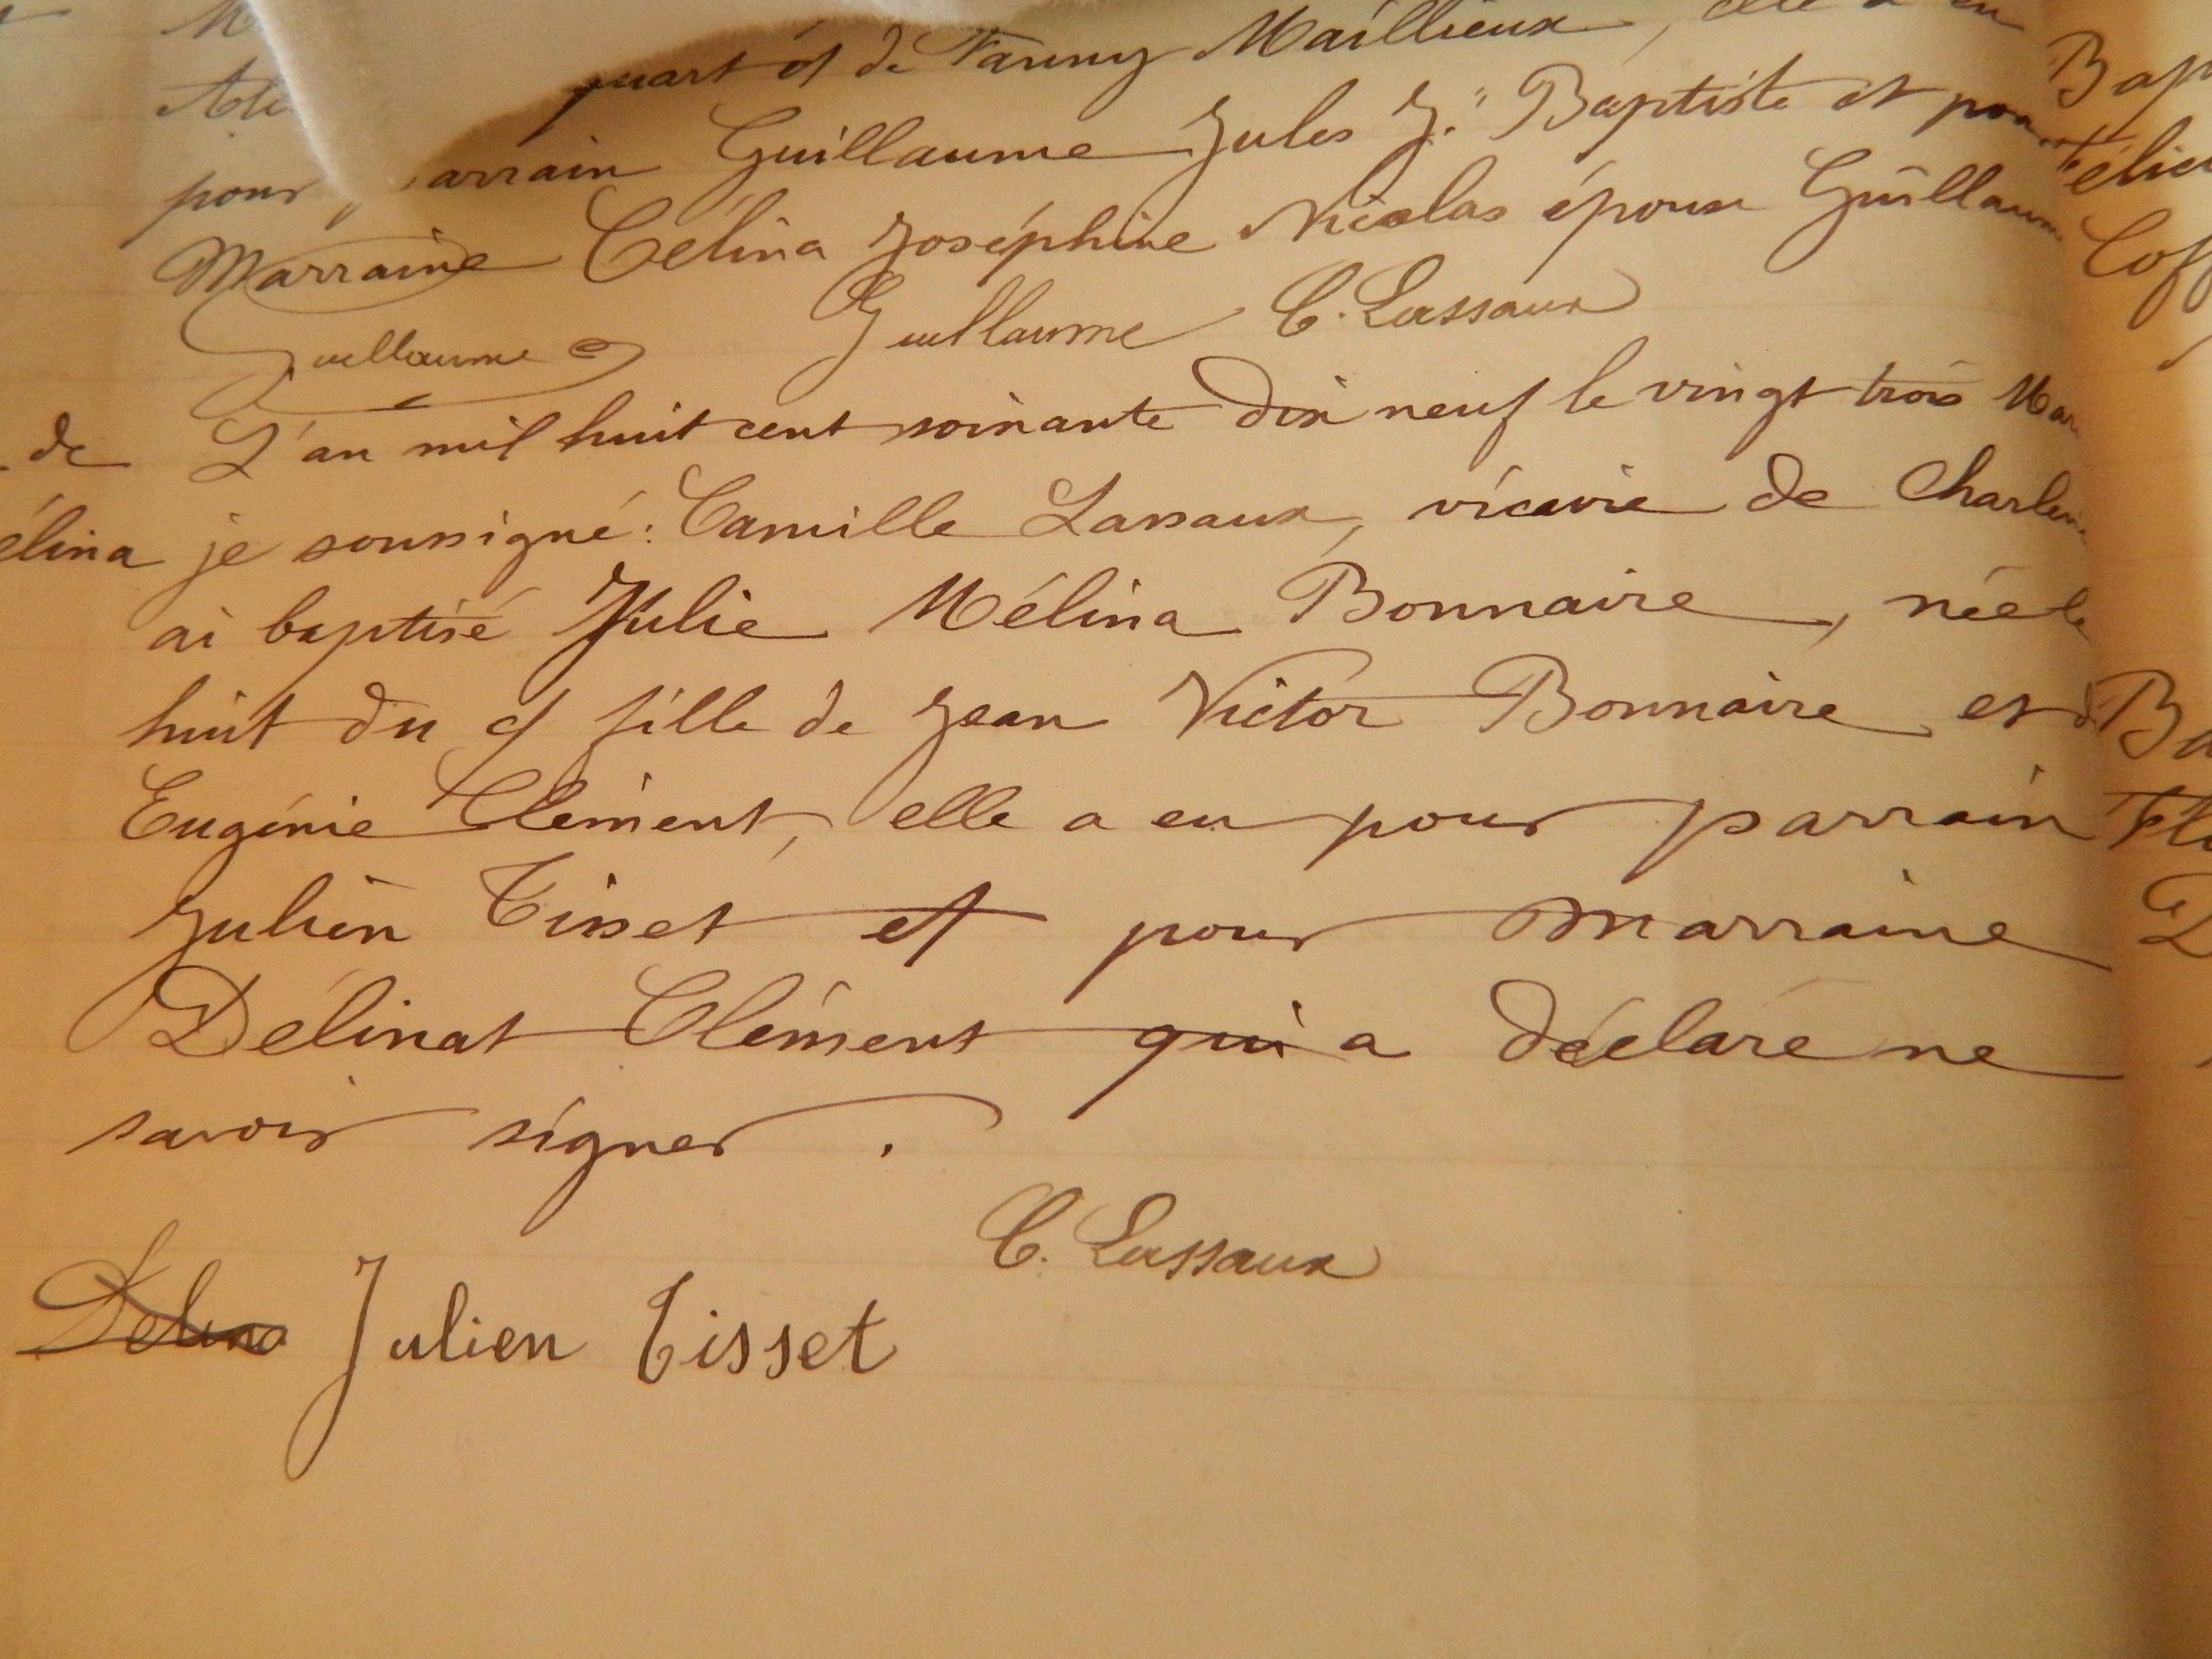 quart et de Fanny Maillieux, elle a eu
pour parrain Guillaume Jules J. Baptiste et pour
Marraine Célina Joséphine Nicolas épouse Guillaume
Guillaume Guillaume C. Lassaux
de L'an mil huit cent soixante dix neuf le vingt trois Mars
élina je soussigné: Camille Lassaux, vicaire de Charle
ai baptisé Julie Mélina Bonnaire, née le
huit du ct fille de Jean Victor Bonnaire et d
Eugénie Clément, elle a eu pour parrain
Julien Tisset et pour Marraine
Délinat Clément qui a déclaré ne
savoir signer.
C. Lassaux
Delina Julien Tisset